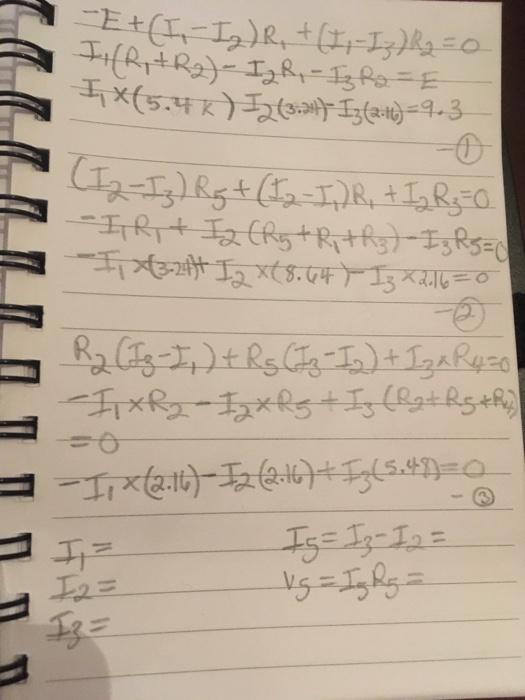 -E+(I₁-I₂)R₁+(I₁-I₃)R₂=0
I₁(R₁+R₂)-I₂R₁-I₃R₂=E
I₁×(5.4K) I₂(3.24)-I₃(2.16)=9.3
-①
(I₂-I₃)R₅+(I₂-I₁)R₁+I₂R₃=0
-I₁R₁+I₂(R₅+R₁+R₃)-I₃R₅=0
-I₁×(3.24)+I₂×(8.64)-I₃×2.16=0
-②
R₂(I₃-I₁)+R₅(I₃-I₂)+I₃×R₄=0
-I₁×R₂-I₂×R₅+I₃(R₂+R₅+R₄)
=0
-I₁×(2.16)-I₂(2.16)+I₃(5.48)=0
-③
I₁= I₅=I₃-I₂=
I₂= V₅=I₅R₅=
I₃=